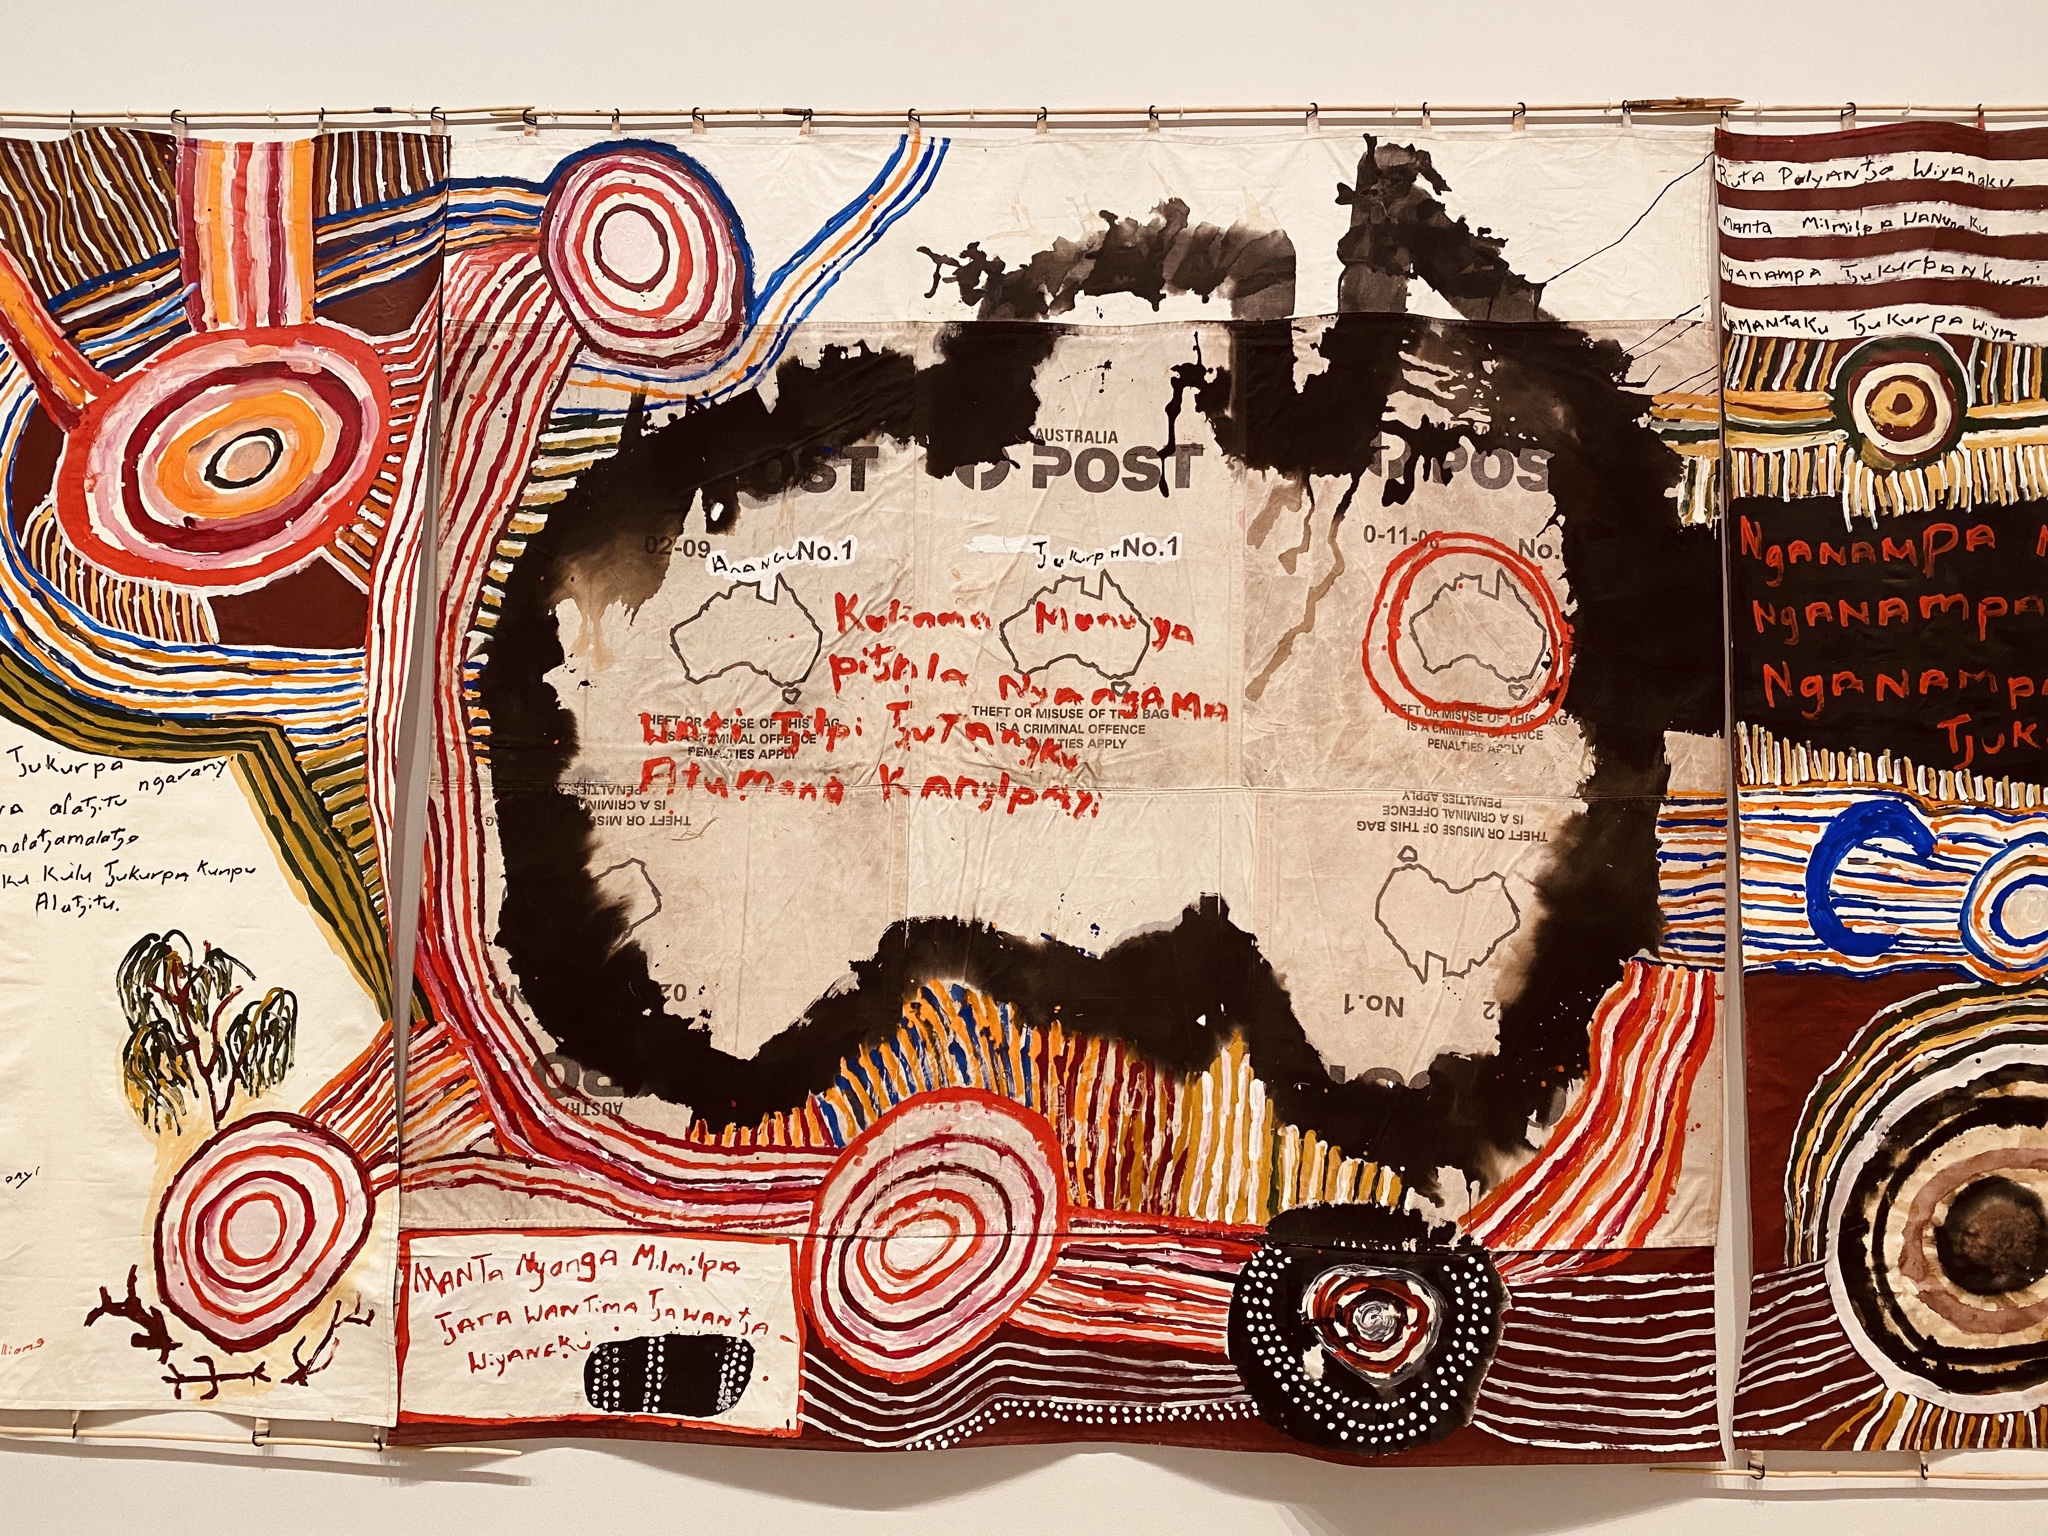 Tjukurpa ngaranyi
alatjitu
malatjamalatja
ku Kulu Tjukurpa Kunpu
Alatjitu.
lliams
POST
AUSTRALIA
POST
POS
02-09
ANANGU No.1
Tjukurpa No.1
0-11-06
No.
Kukama Munuya
pitjila Nyangama
Wati Tjilpi Tjutangku
Atumana Kanyilpayi
THEFT OR MISUSE OF THIS BAG
IS A CRIMINAL OFFENCE
PENALTIES APPLY
THEFT OR MISUSE OF THIS BAG
IS A CRIMINAL OFFENCE
PENALTIES APPLY
THEFT OR MISUSE OF THIS BAG
IS A CRIMINAL OFFENCE
PENALTIES APPLY
PENALTIES
IS A CRIMINAL
THEFT OR MISUS
PENALTIES APPLY
IS A CRIMINAL OFFENCE
THEFT OR MISUSE OF THIS BAG
02
No.1
AUSTRA
MANTA Nyanga Milmilpa
TJARA WANTIMA TJAWANTJA
WIYANGKU
Ruta Palyantja Wiyangku
Manta Milmilpa WANUNGKU
Nganampa Tjukurpa
KAMANTAKU Tjukurpa Wiya
NGANAMPA
NGANAMPA
NGANAMPA
TJUK